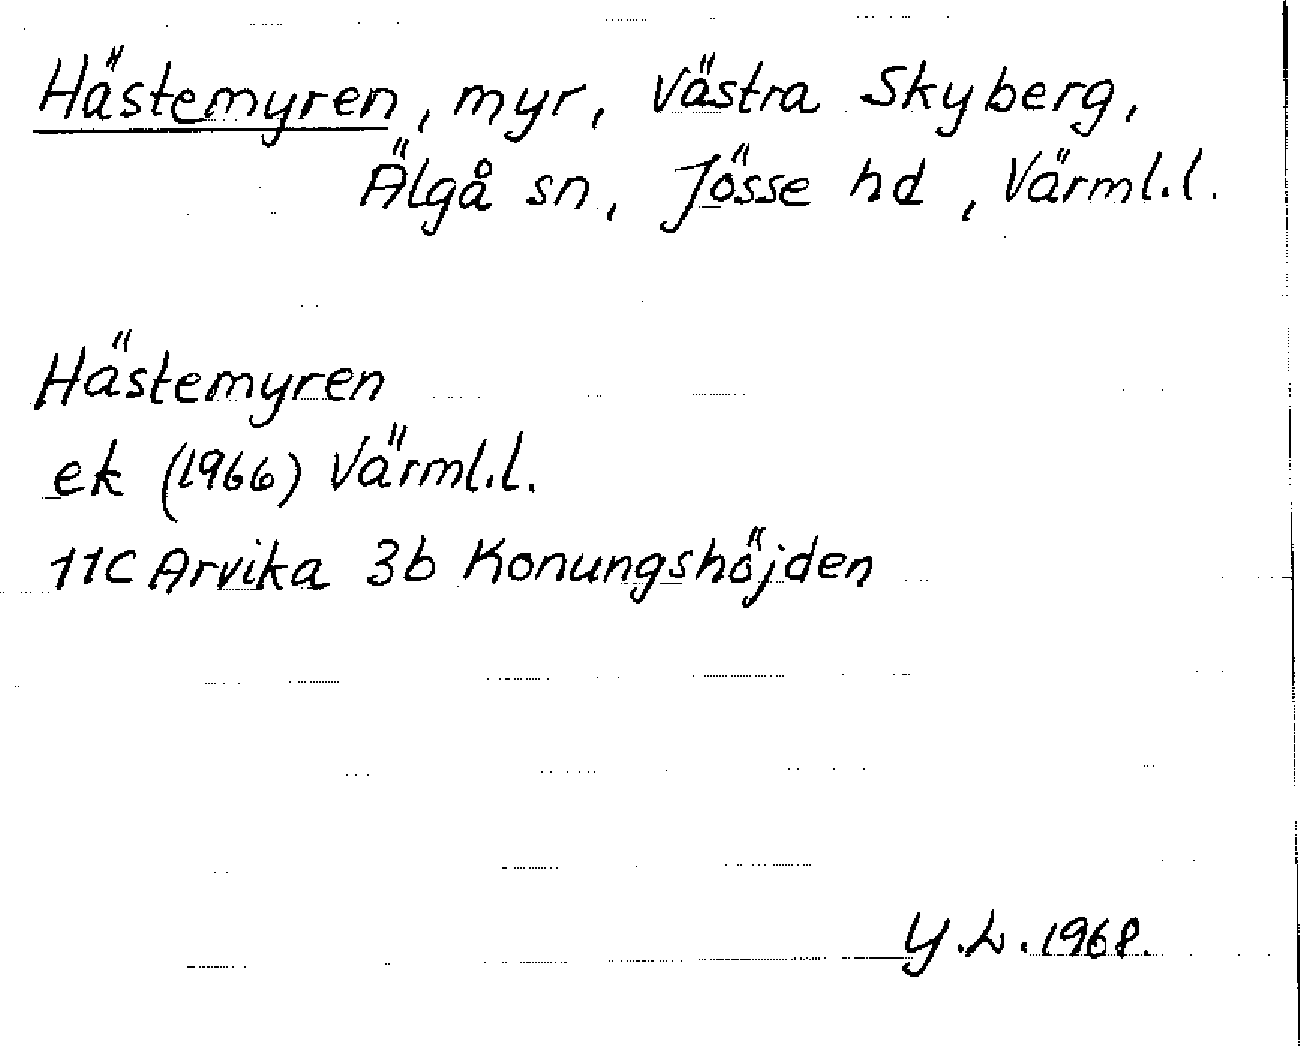 Hästemyren, myr, Västra Skyberg,
Älgå sn, Jösse hd, Värml.l.
Hästemyren
ek (1966) Värml.l.
11C Arvika 3b Konungshöjden
Y.L. 1968.